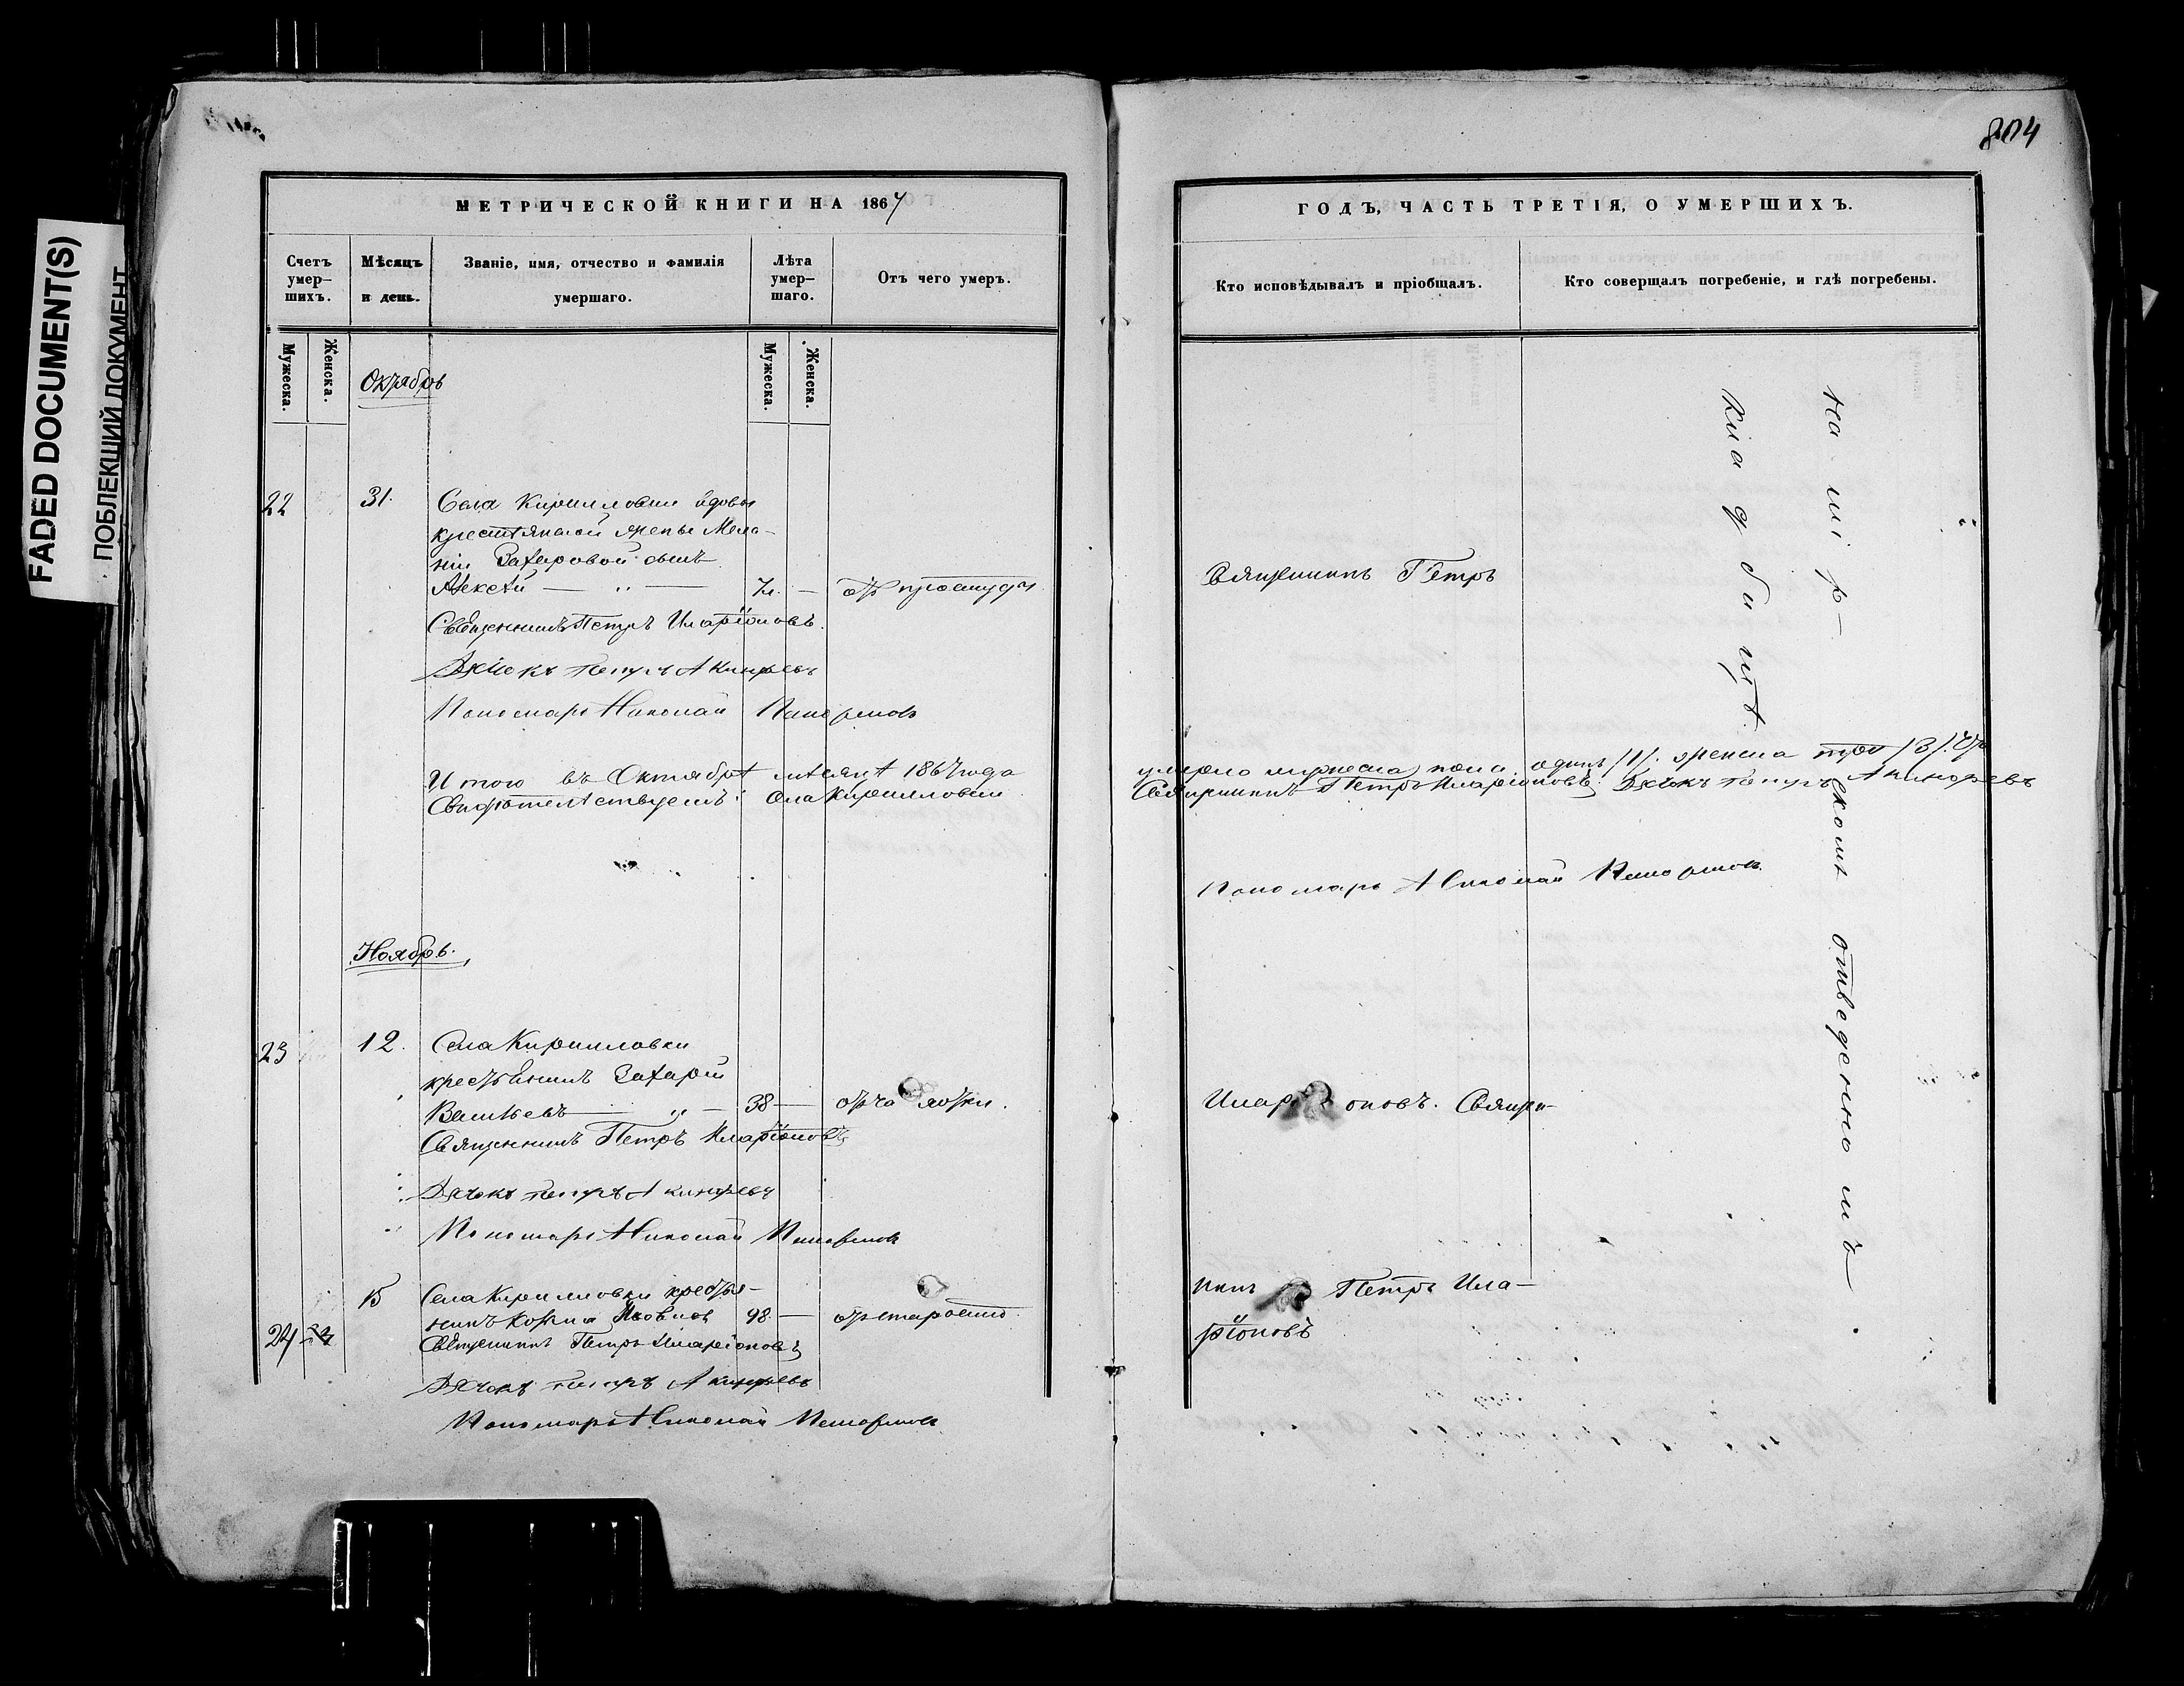 FADED DOCUMENT(S)
ПОБЛЕКШИЙ ДОКУМЕНТ
804
МЕТРИЧЕСКОЙ КНИГИ НА 1867
Счетъ умер-шихъ.
Мѣсяцъ и день.
Званіе, имя, отчество и фамилія умершаго.
Лѣта умер-шаго.
Отъ чего умеръ.
Мужеска.
Женска.
Мужеска.
Женска.
Октябрь
22 31. Села Кирилловки вдовы
крестьянской жены Мела-
ніи Захаровой сынъ
Алексѣй — „ — 7 — отъ простуды
Священникъ Петръ Иларіоновъ.
Дьячокъ Петръ
Пономарь Николай
Итого въ Октябрѣ мѣсяцѣ 1867 года
Свидѣтельствуемъ: Села Кирилловки
Ноябрь.
23 12. Села Кирилловки
крестьянинъ Захарій
Васильевъ — „ — 38 — отъ чахотки.
Священникъ Петръ Иларіоновъ
Дьячокъ Петръ
Пономарь Николай
15 Села Кирилловки крестья-
24 нинъ Козма Яковлевъ 98 — отъ старости
Священникъ Петръ Иларіоновъ
Дьячокъ Петръ
Пономарь Николай
ГОДЪ, ЧАСТЬ ТРЕТІЯ, О УМЕРШИХЪ.
Кто исповѣдывалъ и пріобщалъ.
Кто совершалъ погребеніе, и гдѣ погребены.
Священникъ Петръ
умерло мужеска пола одинъ /1/. женска три /3/.
Священникъ Петръ Иларіоновъ. Дьячокъ Петръ
Пономарь Николай
Илар оновъ. Священ-
никъ Петръ Ила-
ріоновъ
на мір-
скомъ отведенномъ
кладбищѣ.